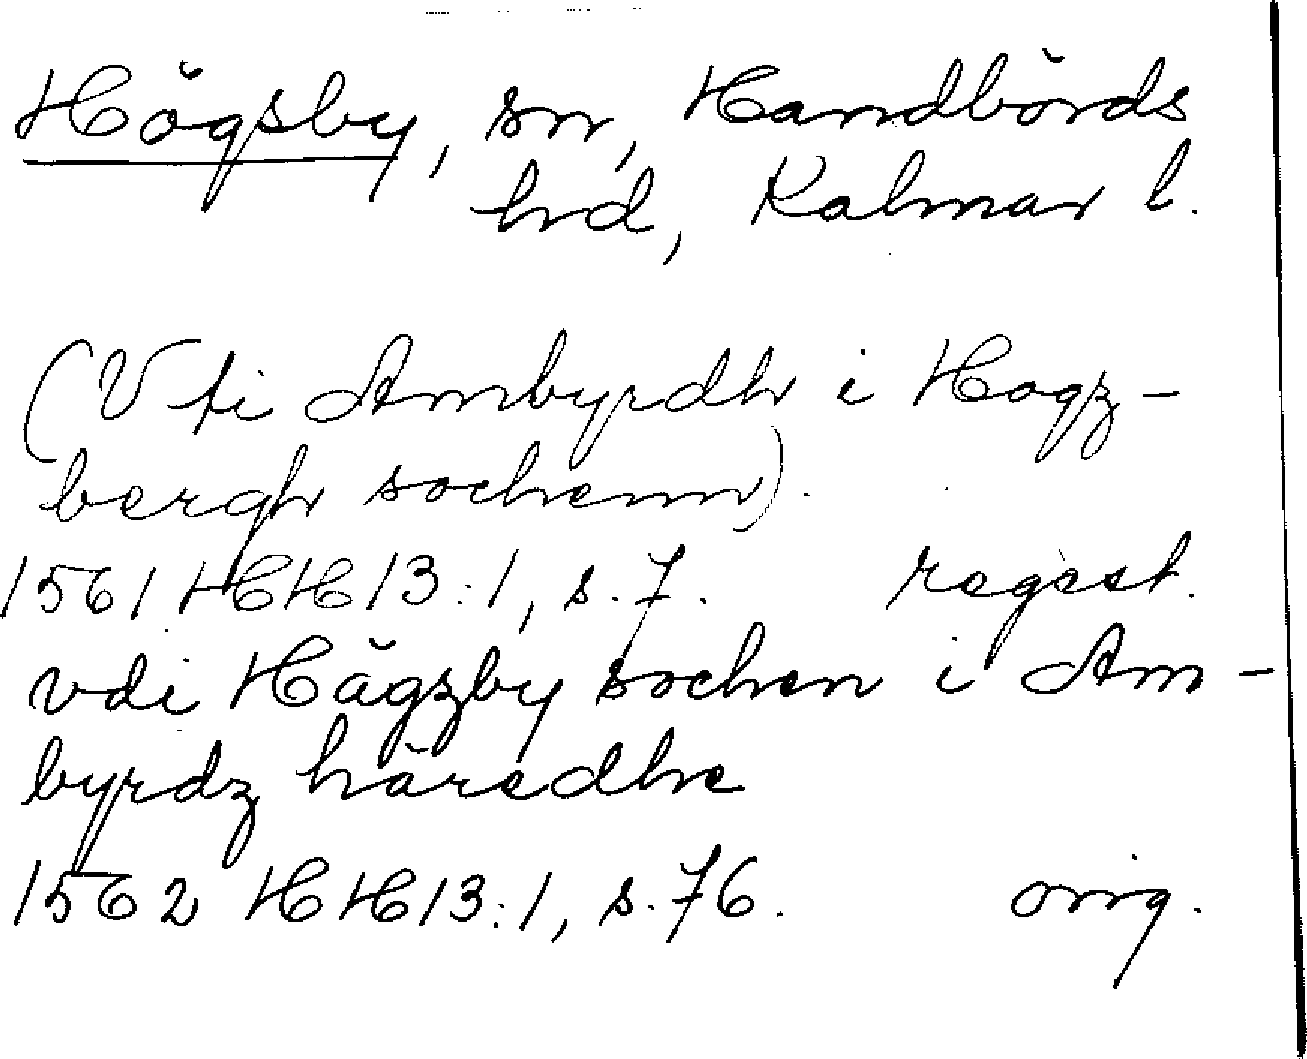 Högsby, sn, Handbörds
hrd, Kalmar l.
(Vti Ambyrdh i Hogz-
bergh sochenn).
1561 HH 13:1, s. 7. regest.
vdi Högzby sochen i Am-
byrdz häredhe
1562 HH 13:1, s. 76. orig.